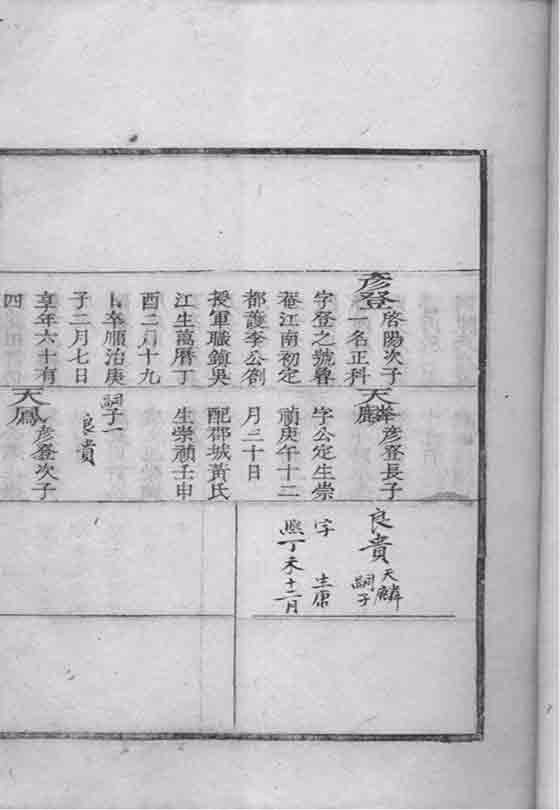 彥登
啓陽次子
一名正科
字登之號魯
菴江南初定
都護李公劄
授軍職鎮吳
江生萬曆丁
酉二月十九
卜卒順治庚
子二月七日
享年六十有
四
天麟
彥登長子
字公定生崇
禎庚午十二
月三十日
配郡城黃氏
生崇禎壬申
嗣子一
良貴
天鳳
彥登次子
良貴
天麟
嗣子
字 生康
熙丁未十二月